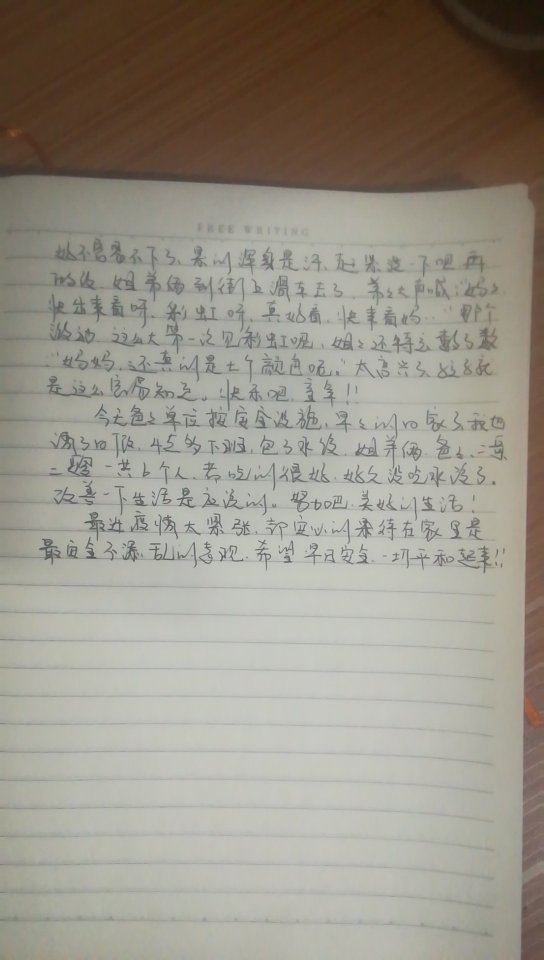 FREE WRITING
不下了，累的浑身是汗，赶紧 一下吧，再
的 姐弟俩到街上滑车去了，弟弟大声喊：妈妈
快出来看呀，彩虹呀，真好看，快来看妈。那个
激动 这么大第一次见彩虹呢，姐姐还特意数了数
"妈妈，还真的是七个颜色呢。"太高兴了，孩子就
是这么容易知足。快乐吧，童年!!
今天爸爸单位按安全设施，早早的回家了，我也
调了口休，4点多下班，包了水饺，姐弟俩，爸爸，二
一共6个人，都吃的很好，好久没吃水饺了。
改善一下生活是应该的。努力吧，美好的生活！
最近疫情太紧张，都安心的来待在家里是
最安全不添乱的表现，希望早日安全，一切平和起来!!